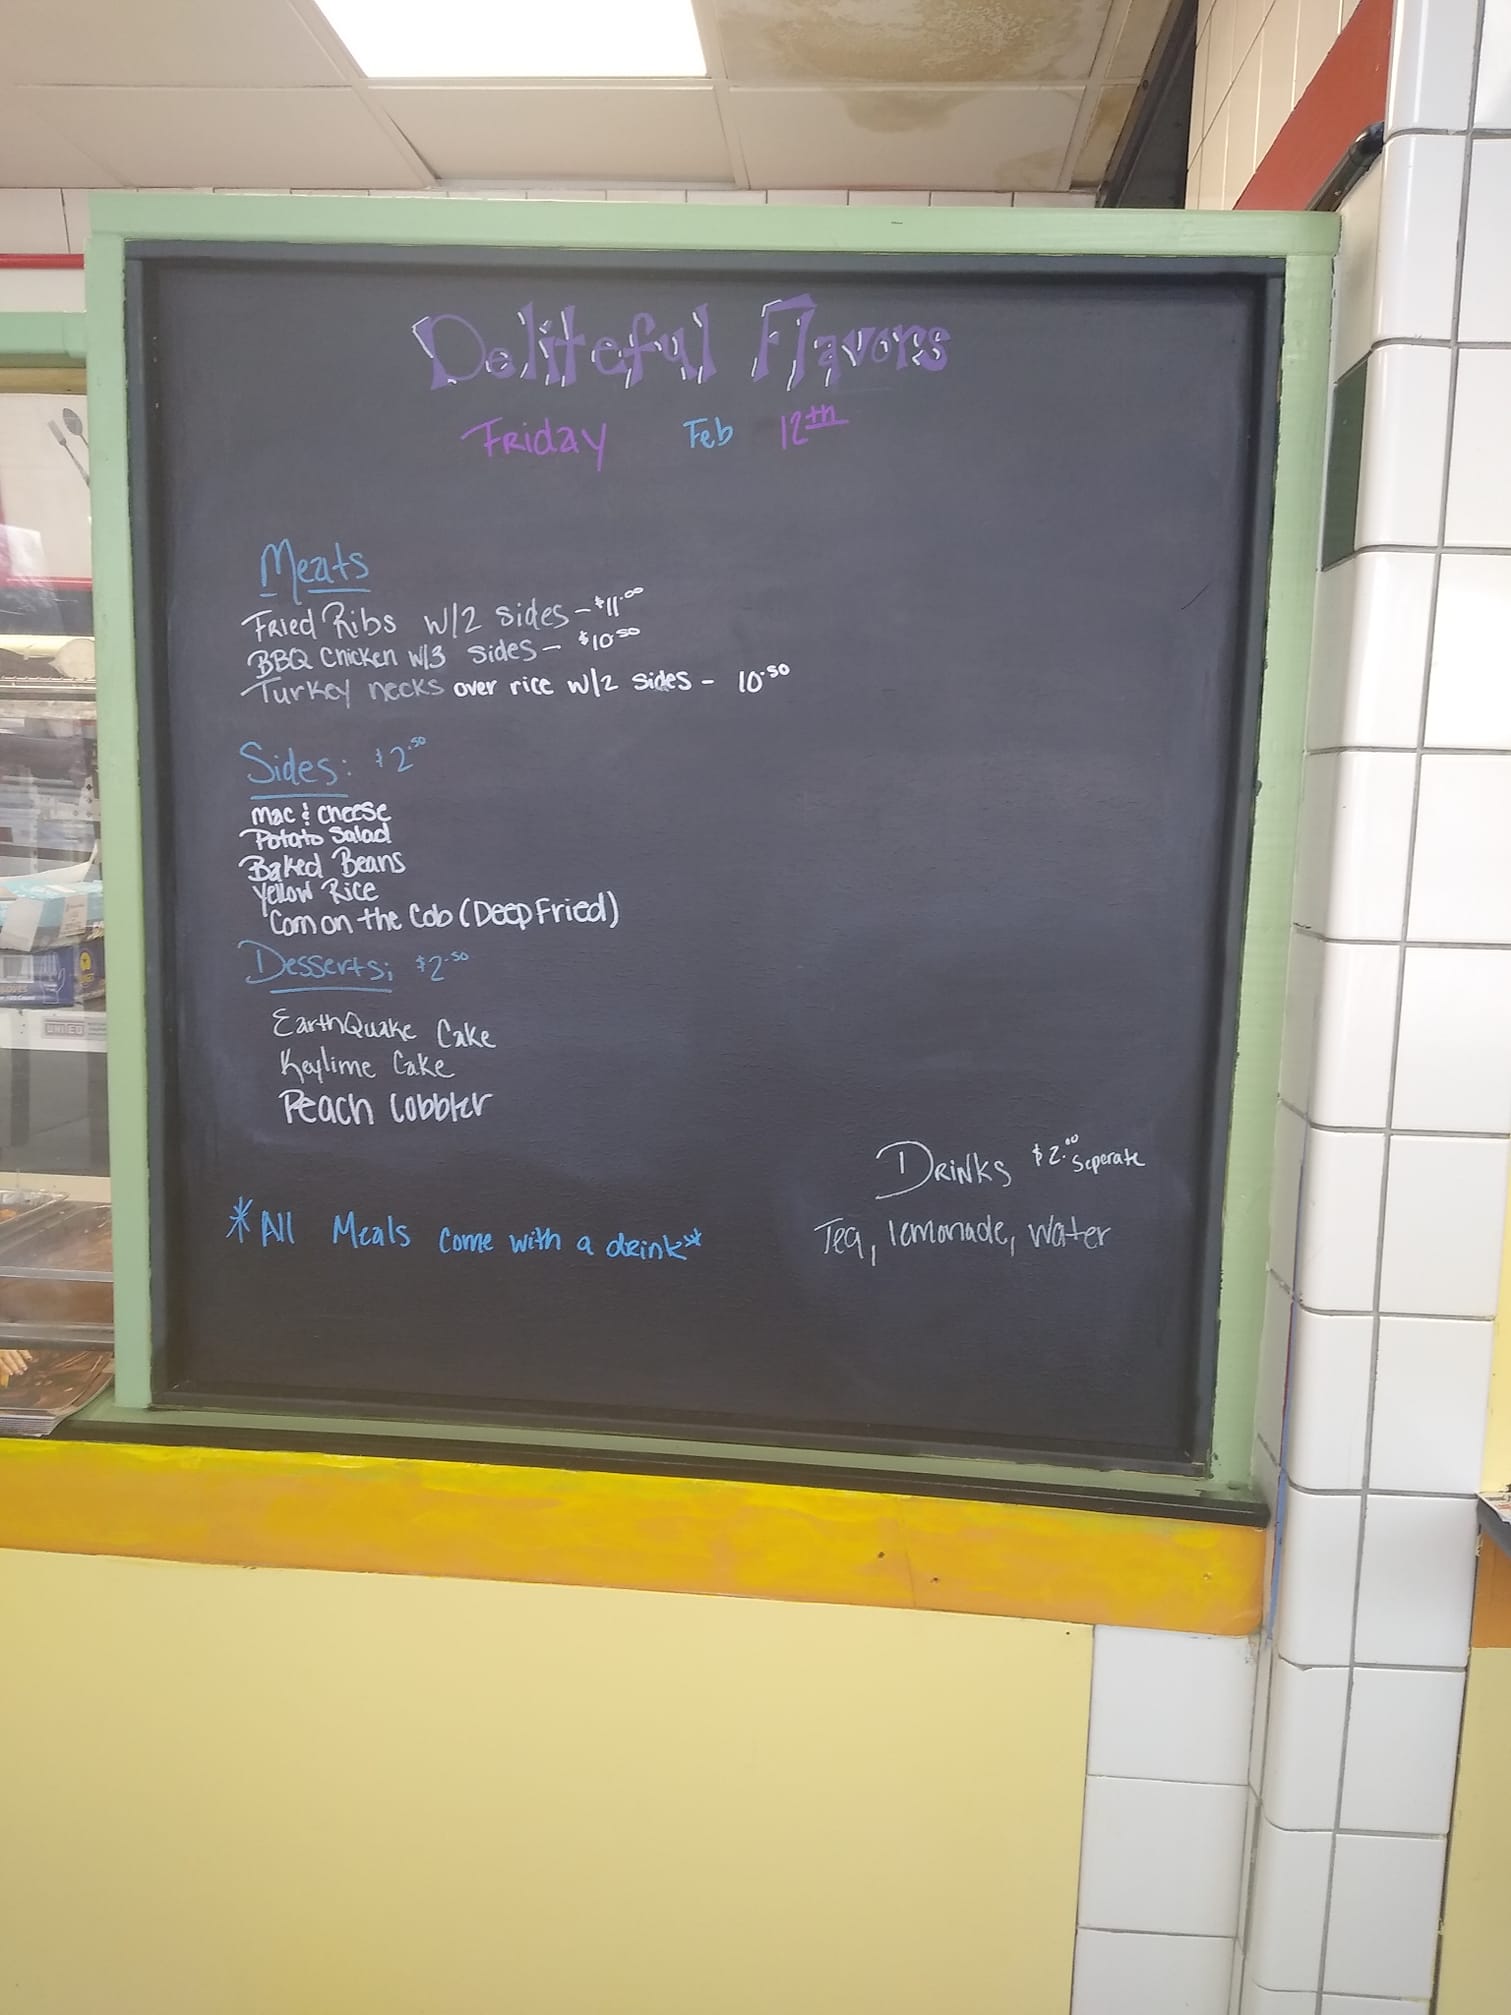 Deliteful Flavors
Friday Feb 12th
Meats
Fried Ribs w/2 sides - $11.00
BBQ Chicken w/3 sides - $10.50
Turkey necks over rice w/2 sides - 10.50
Sides: $2.50
Mac & cheese
Potato Salad
Baked Beans
Yellow Rice
Corn on the Cob (Deep Fried)
Desserts; $2.50
EarthQuake Cake
Keylime Cake
Peach Cobbler
Drinks $2.00 Seperate
Tea, lemonade, water
*All Meals come with a drink*
UNITED